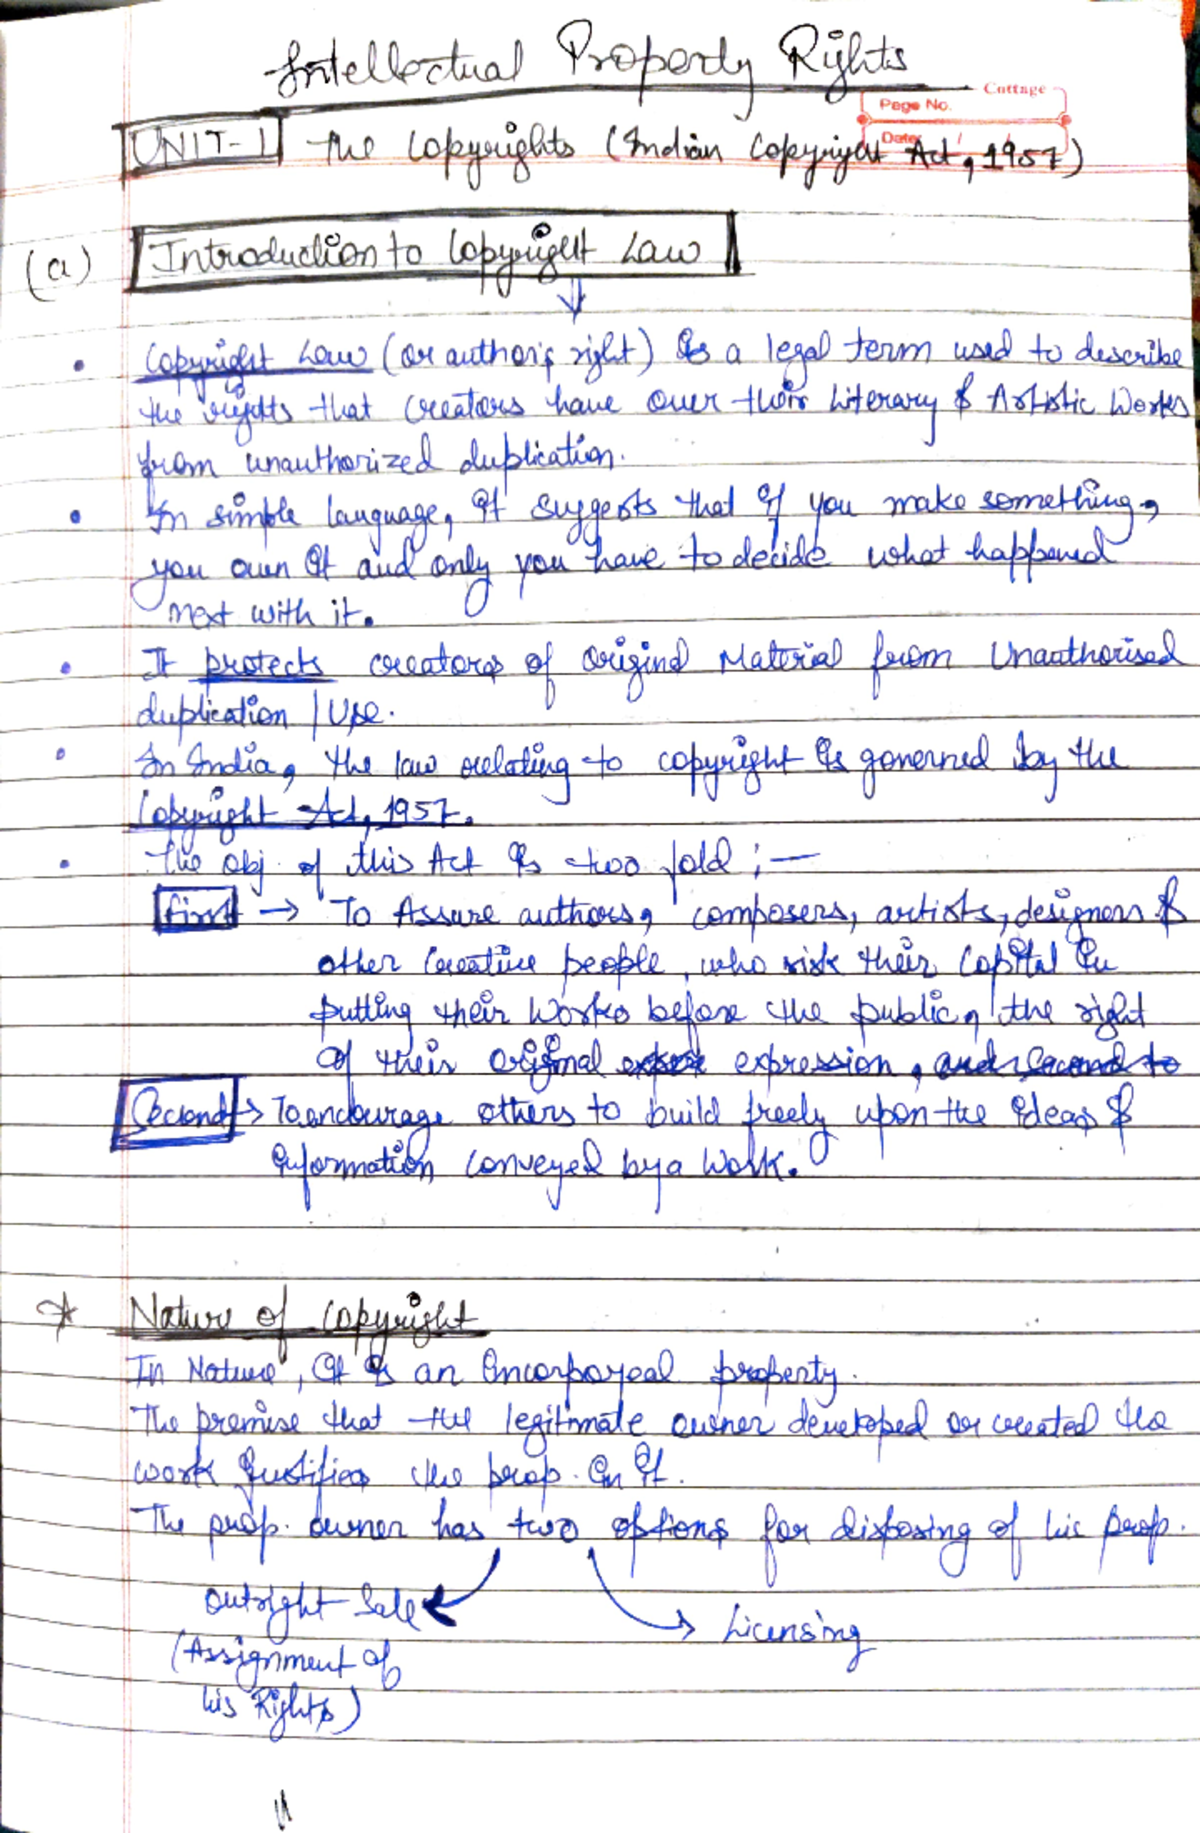 Intellectual Property Rights
Cottage
Page No.
Date: / /
UNIT-1 The Copyrights (Indian Copyright Act, 1957)
(a) Introduction to Copyright Law
• Copyright Law (or author's right) is a legal term used to describe
the rights that creators have over their literary & Artistic Works
from unauthorized duplication.
• In simple language, it suggests that if you make something,
you own it and only you have to decide what happened
next with it.
• It protects creators of original Material from Unauthorised
duplication / Use.
• In India, the law relating to copyright is governed by the
Copyright Act, 1957.
• The obj of this Act is two fold ; —
first → To Assure authors, composers, artists, designers &
other creative people, who risk their capital in
putting their works before the public, the right
of their original expression, and second to
Second → To encourage others to build freely upon the ideas &
information conveyed by a work.
* Nature of Copyright
In Nature, it is an incorporeal property.
The premise that the legitimate owner developed or created the
work justifies the prop. in it.
The prop. owner has two options for disposing of his prop.
Outright Sale
→ Licensing
(Assignment of
his Rights)